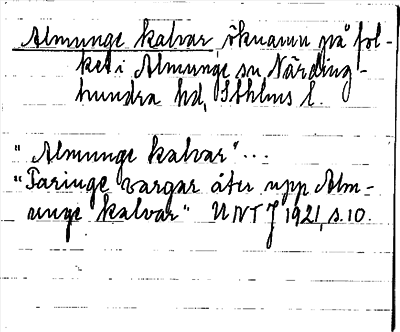 Almunge kalvar, öknamn på fol-
ket i Almunge sn, Närding-
hundra hd, Sthlms l.
"Almunge kalvar"...
"Faringe vargar åter upp Alm-
unge kalvar" UNT J 1921, s. 10.